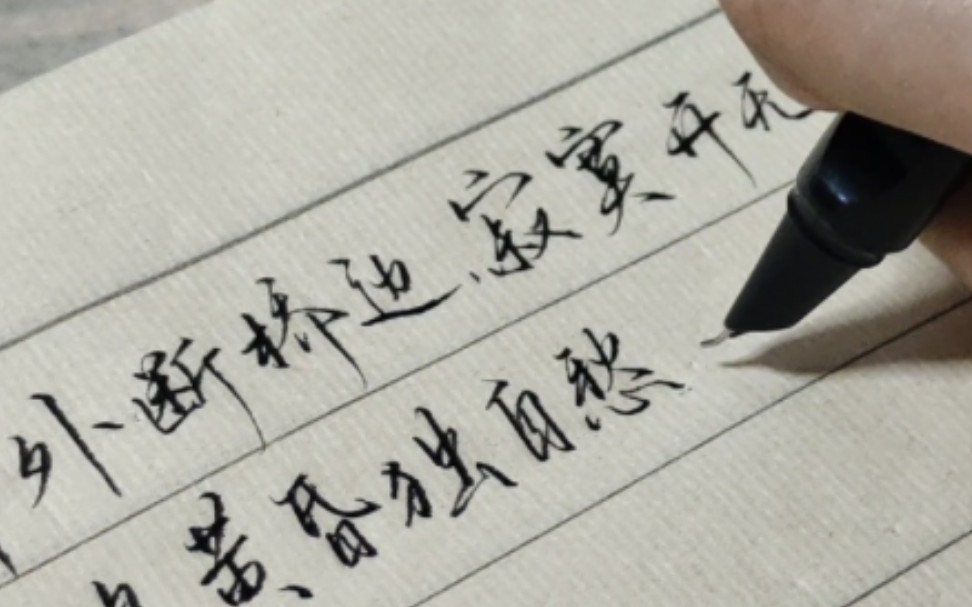 外断桥边,寂寞开无
黄昏独自愁